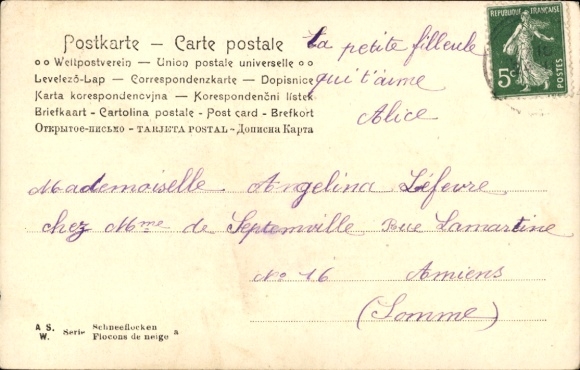 Postkarte — Carte postale
Weltpostverein — Union postale universelle
Levelező-Lap — Correspondenzkarte — Dopisnice
Karta korespondencyjna — Korespondenční lístek
Briefkaart - Cartolina postale - Post card - Brefkort
Открытое-письмо - TARJETA POSTAL - Дописна Карта
ta petite filleule
qui t'aime
Alice
REPUBLIQUE FRANÇAISE
5c
POSTES
Mademoiselle Angelina Léfevre
chez Mme de Septemville Rue Lamartine
No 16 Amiens
(Somme)
A. S. W. Serie Schneeflocken a
Flocons de neige